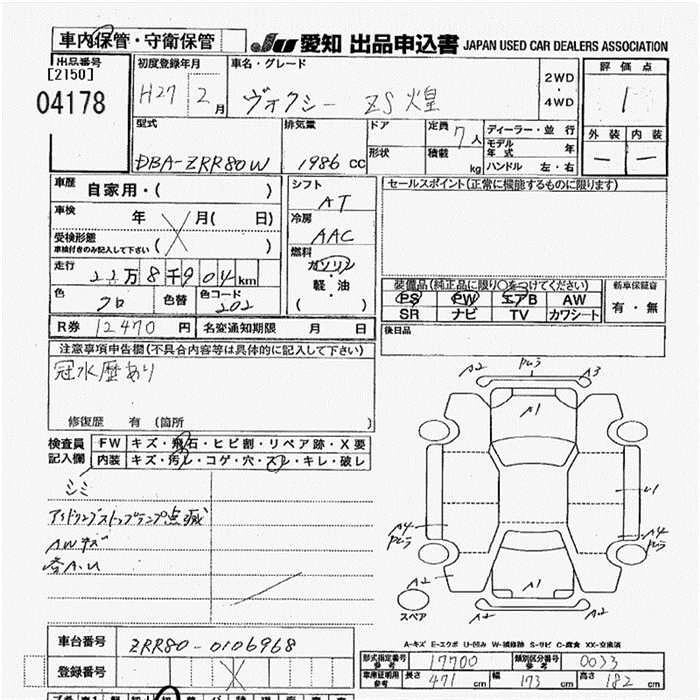 車内保管・守衛保管
JU 愛知 出品申込書 JAPAN USED CAR DEALERS ASSOCIATION
出品番号 初度登録年月 車名・グレード 評価点
[2150]
04178 H27 2月 ヴォクシー ZS 煌 2WD・4WD 1
型式 排気量 ドア 定員 7人 ディーラー・並行 外装 内装
モデル年式 年
DBA-ZRR80W 1986 CC 形状 積載 kg ハンドル 左・右 ー ー
車歴 自家用・( ) シフト AT セールスポイント(正常に機能するものに限ります)
車検 年 月( 日) 冷房 AAC
受検形態 ( )
車検付きのみ記入して下さい
燃料 ガソリン・軽・油 ( )
走行 22万8千904km
色 クロ 色替 色コード 202
装備品(純正品に限り○をつけてください) 新車保証書
PS PW エアB AW 有・無
SR ナビ TV カワシート
R券 12470円 名変通知期限 月 日 後日品
注意事項申告欄(不具合内容等は具体的に記入して下さい)
冠水歴あり
修復歴 有 (箇所 )
検査員記入欄 FW キズ・飛石・ヒビ割・リペア跡・X要
内装 キズ・汚レ・コゲ・穴・スレ・キレ・破レ
シミ
アイドリングストップランプ点滅
AWキズ
各A.U
A2 A3
A1
U1
A4 A4
A2 A1
A2 A2
スペア
A-キズ E-エクボ U-凹み W-補修跡 S-サビ C-腐食 XX-交換済
車台番号 ZRR80-0106968
登録番号
型式指定番号 参考 17700 類別区分番号 参考 0033
車庫証明用 参考 長さ 471 cm 幅 173 cm 高さ 182 cm